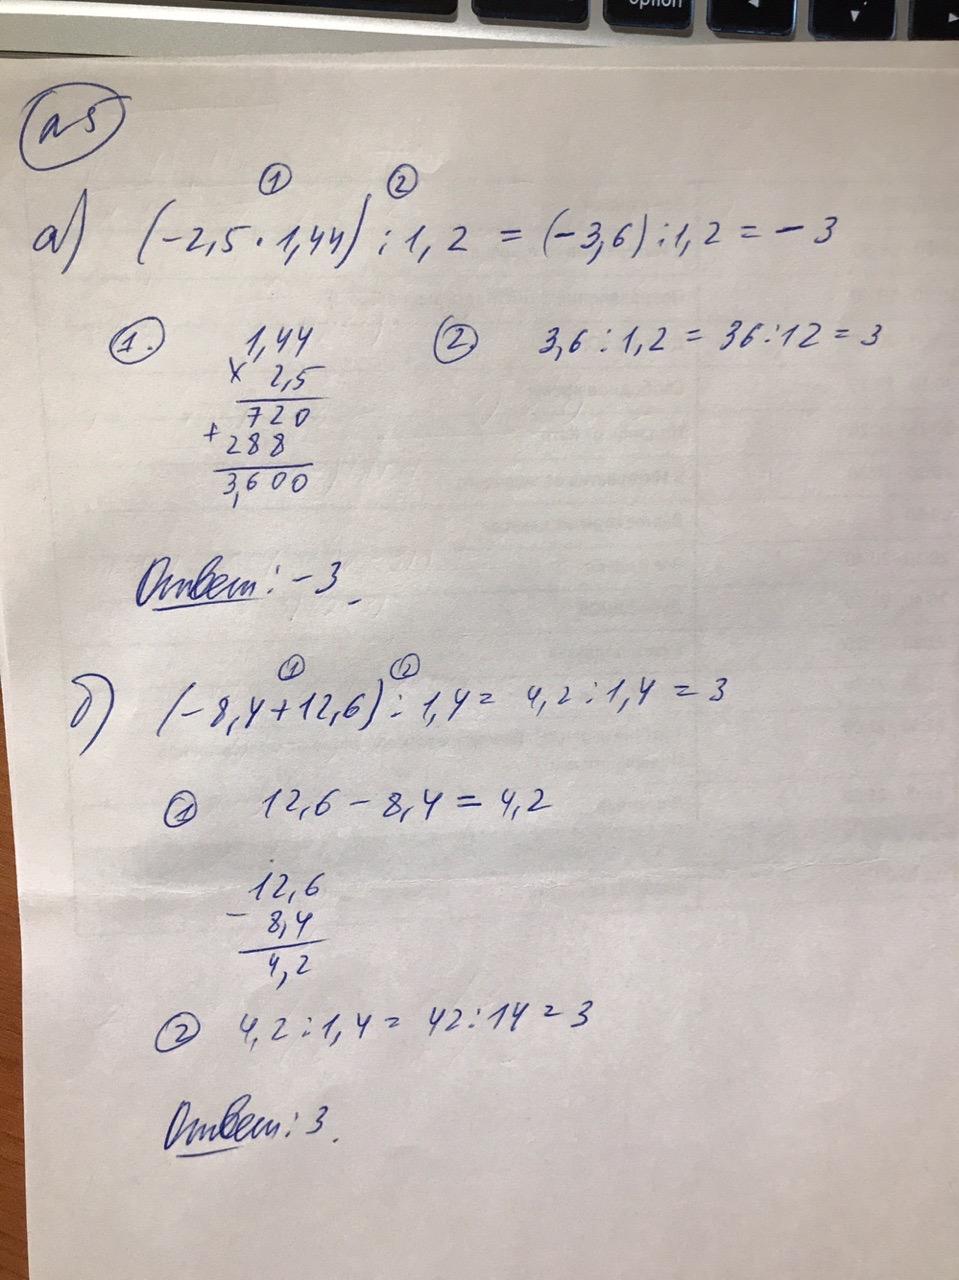 option
№5
① ②
а) (-2,5 · 1,44) : 1,2 = (-3,6) : 1,2 = - 3
①. 1,44 ②. 3,6 : 1,2 = 36 : 12 = 3
× 2,5
720
+ 288
3,600
Ответ: -3.
① ②
б) (-8,4+12,6) : 1,4 = 4,2 : 1,4 = 3
① 12,6 - 8,4 = 4,2
12,6
- 8,4
4,2
② 4,2 : 1,4 = 42 : 14 = 3
Ответ: 3.